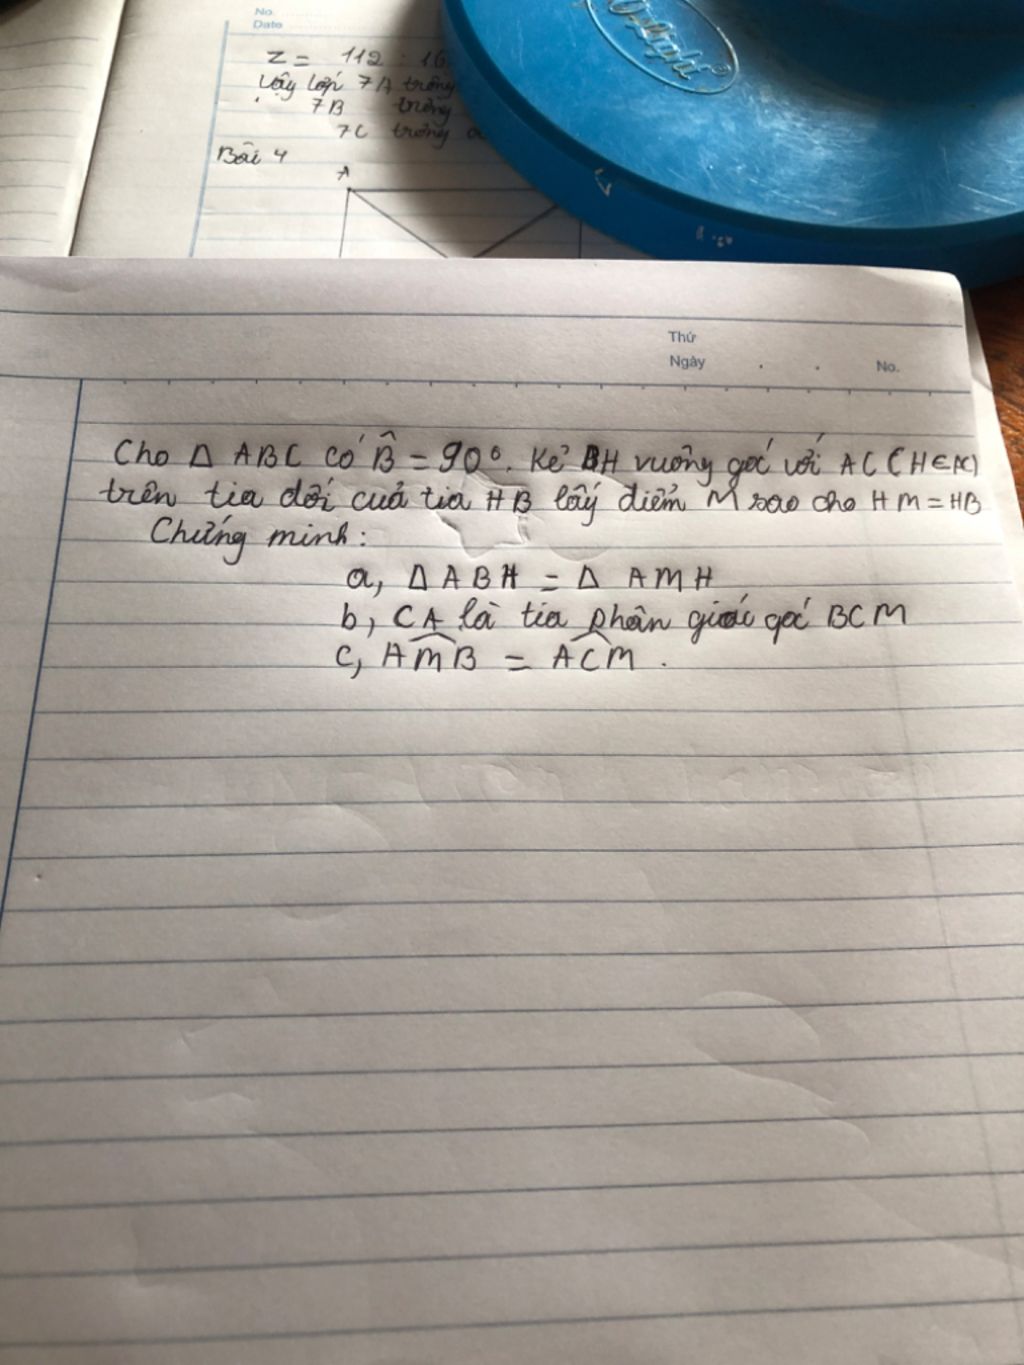 No.
Date
Z = 112 : 16
Vậy lớp 7A trồng
7B trồng
7C trồng
Bài 4
A
Delight
Thứ
Ngày . . No.
Cho Δ ABC có B̂ = 90°. Kẻ BH vuông góc với AC (H∈AC)
trên tia đối của tia HB lấy điểm M sao cho HM = HB
Chứng minh:
a, Δ ABH = Δ AMH
b, CA là tia phân giác góc BCM
c, AM̂B = AĈM .